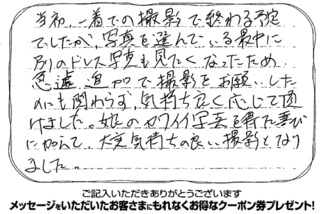 当初、一着での撮影で終わる予定
でしたが、写真を選んでいる最中に
別のドレス写真も見たくなったため
急遽追加で撮影をお願いした
のにも関わらず、気持ち良く応じて頂
けました。娘のカワイイ写真を得た喜び
に加えて、大変気持ちの良い撮影となり
ました。
ご記入いただきありがとうございます
メッセージをいただいたお客さまにもれなくお得なクーポン券プレゼント!